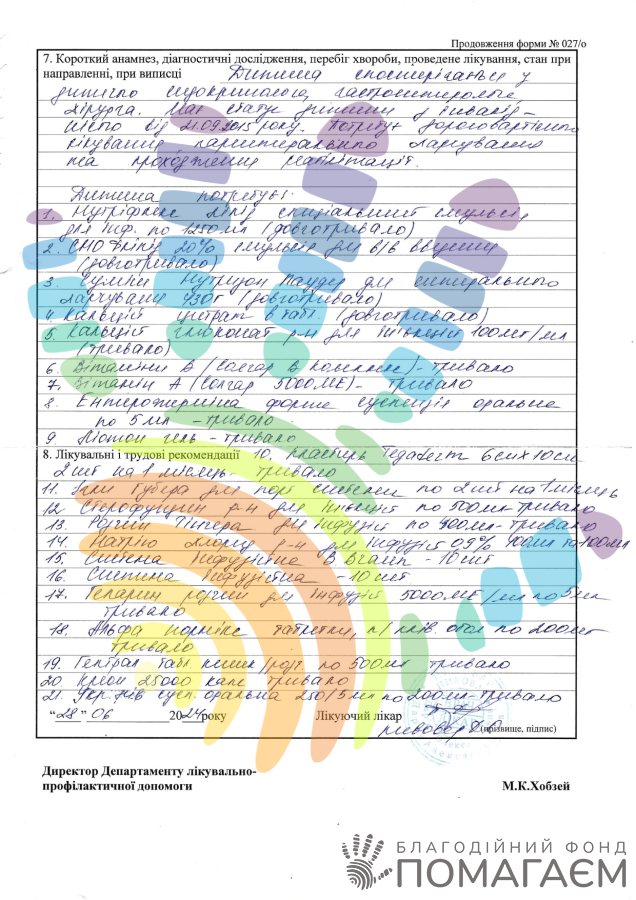 Продовження форми № 027/о
7. Короткий анамнез, діагностичні дослідження, перебіг хвороби, проведене лікування, стан при
направленні, при виписці Дитина спостерігається у
дитячого ендокринолога, гастроентеролога,
хірурга. Має статус дитини з інвалід-
ністю від 21.09.2015 року. Потребує дороговартісного
лікування парентерального харчування
та проходження реабілітації.
Дитина потребує:
1. Нутріфлекс ліпід спеціальний емульсія
для інф. по 1250 мл (довготривало)
2. СМОФліпід 20% емульсія для в/в введення
(довготривало)
3. Суміш Нутризон Паудер для ентерального
харчування 430г (довготривало)
4. Кальцій цитрат в табл. (довготривало)
5. Кальцій глюконат р-н для ін'єкцій 100мг/мл
(тривало)
6. Вітаміни В (Солгар В комплекс) - тривало
7. Вітамін А (Солгар 5000МЕ) - тривало
8. Ентерожерміна форте суспензія оральна
по 5 мл - тривало
9. Ліотон гель - тривало
8. Лікувальні і трудові рекомендації 10. пластирь Tegaderm 6см х 10см
2шт на 1 місяць - тривало
11. Голки Губера для порт системи по 2шт на 1 місяць
12. Стерофундин р-н для інфузій по 500мл - тривало
13. Розчин Рінгера для інфузій по 400мл - тривало
14. Натрію хлорид р-н для інфузій 0,9% 400мл та 100мл
15. Система інфузійна - 10шт
16. Система інфузійна - 10 шт
17. Гепарин розчин для інфузій 5000МЕ/мл по 5мл
тривало
18. Альфа нормікс таблетки, п/плів. обол по 200мг
тривало
19. Гептрал табл. по 500мг тривало
20. Креон 25000 капс тривало
21. сусп. оральна 250/5мл по 200мг - тривало
“28” 06 2024 року Лікуючий лікар
(прізвище, підпис)
Директор Департаменту лікувально-
профілактичної допомоги М.К.Хобзей
БЛАГОДІЙНИЙ ФОНД
ПОМАГАЄМ